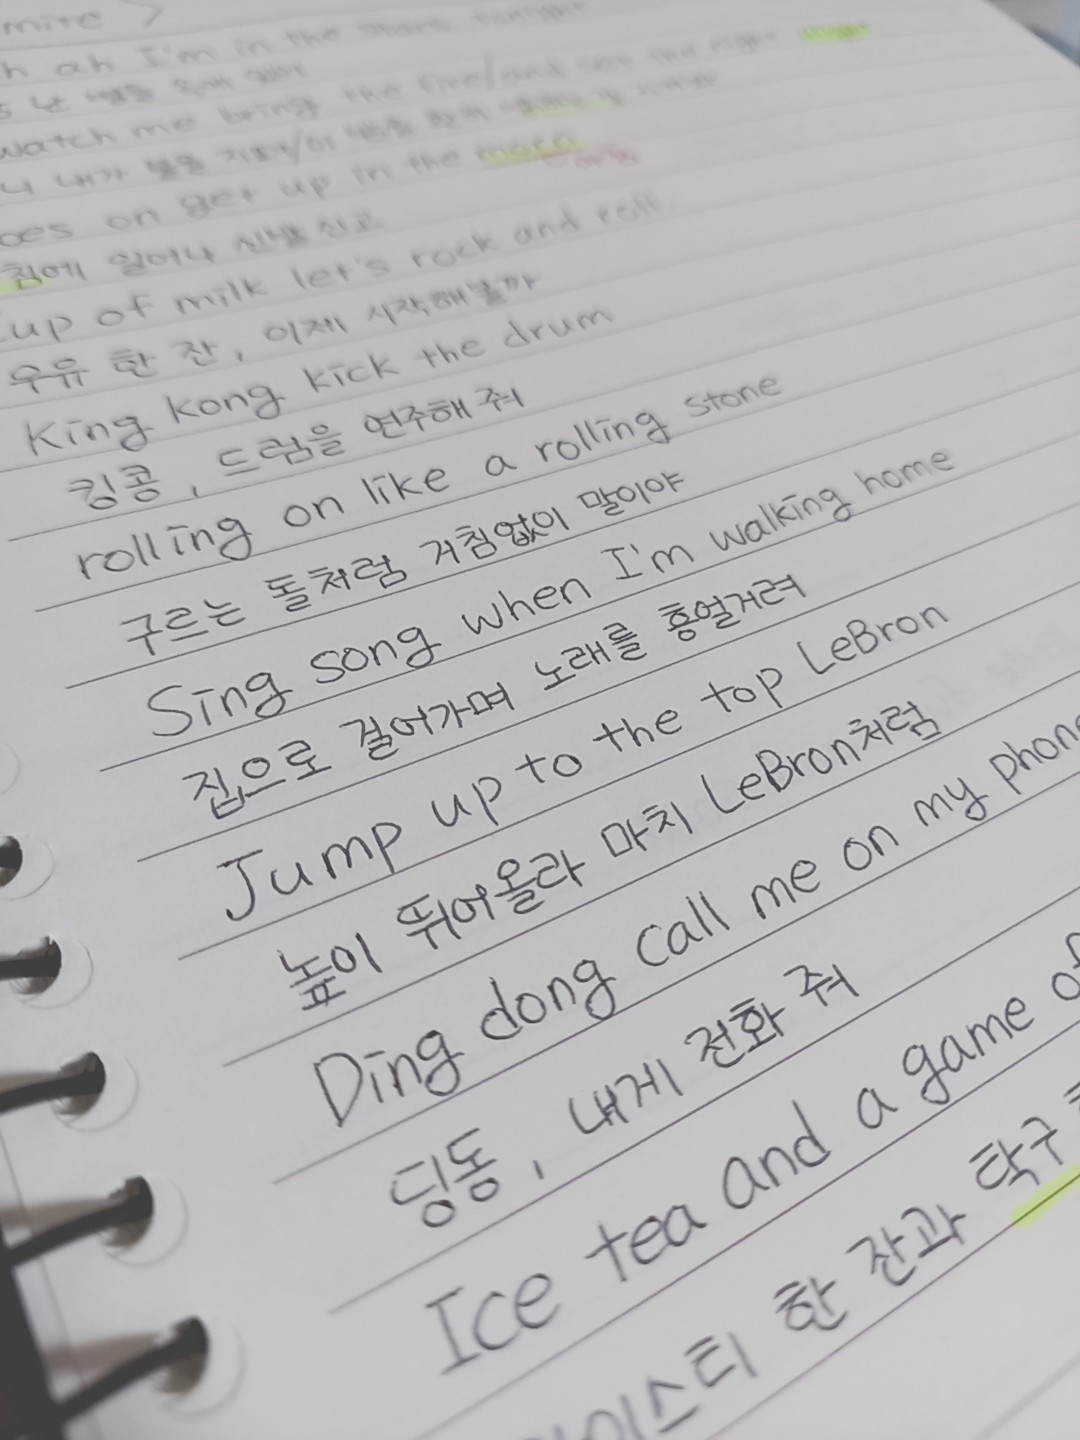 mite >
ah I'm in the stars tonight
watch me bring the fire/and set the night
내가 불을 지펴/이 밤을
oes on get up in the morn
침에 일어나 신발 신고
Cup of milk let's rock and roll
우유 한 잔, 이제 시작해볼까
King kong kick the drum
킹콩, 드럼을 연주해 줘
rolling on like a rolling stone
구르는 돌처럼 거침없이 말이야
Sing song when I'm walking home
집으로 걸어가며 노래를 흥얼거려
Jump up to the top LeBron
높이 뛰어올라 마치 LeBron처럼
Ding dong call me on my phon
딩동, 내게 전화 줘
Ice tea and a game of
이스티 한 잔과 탁구